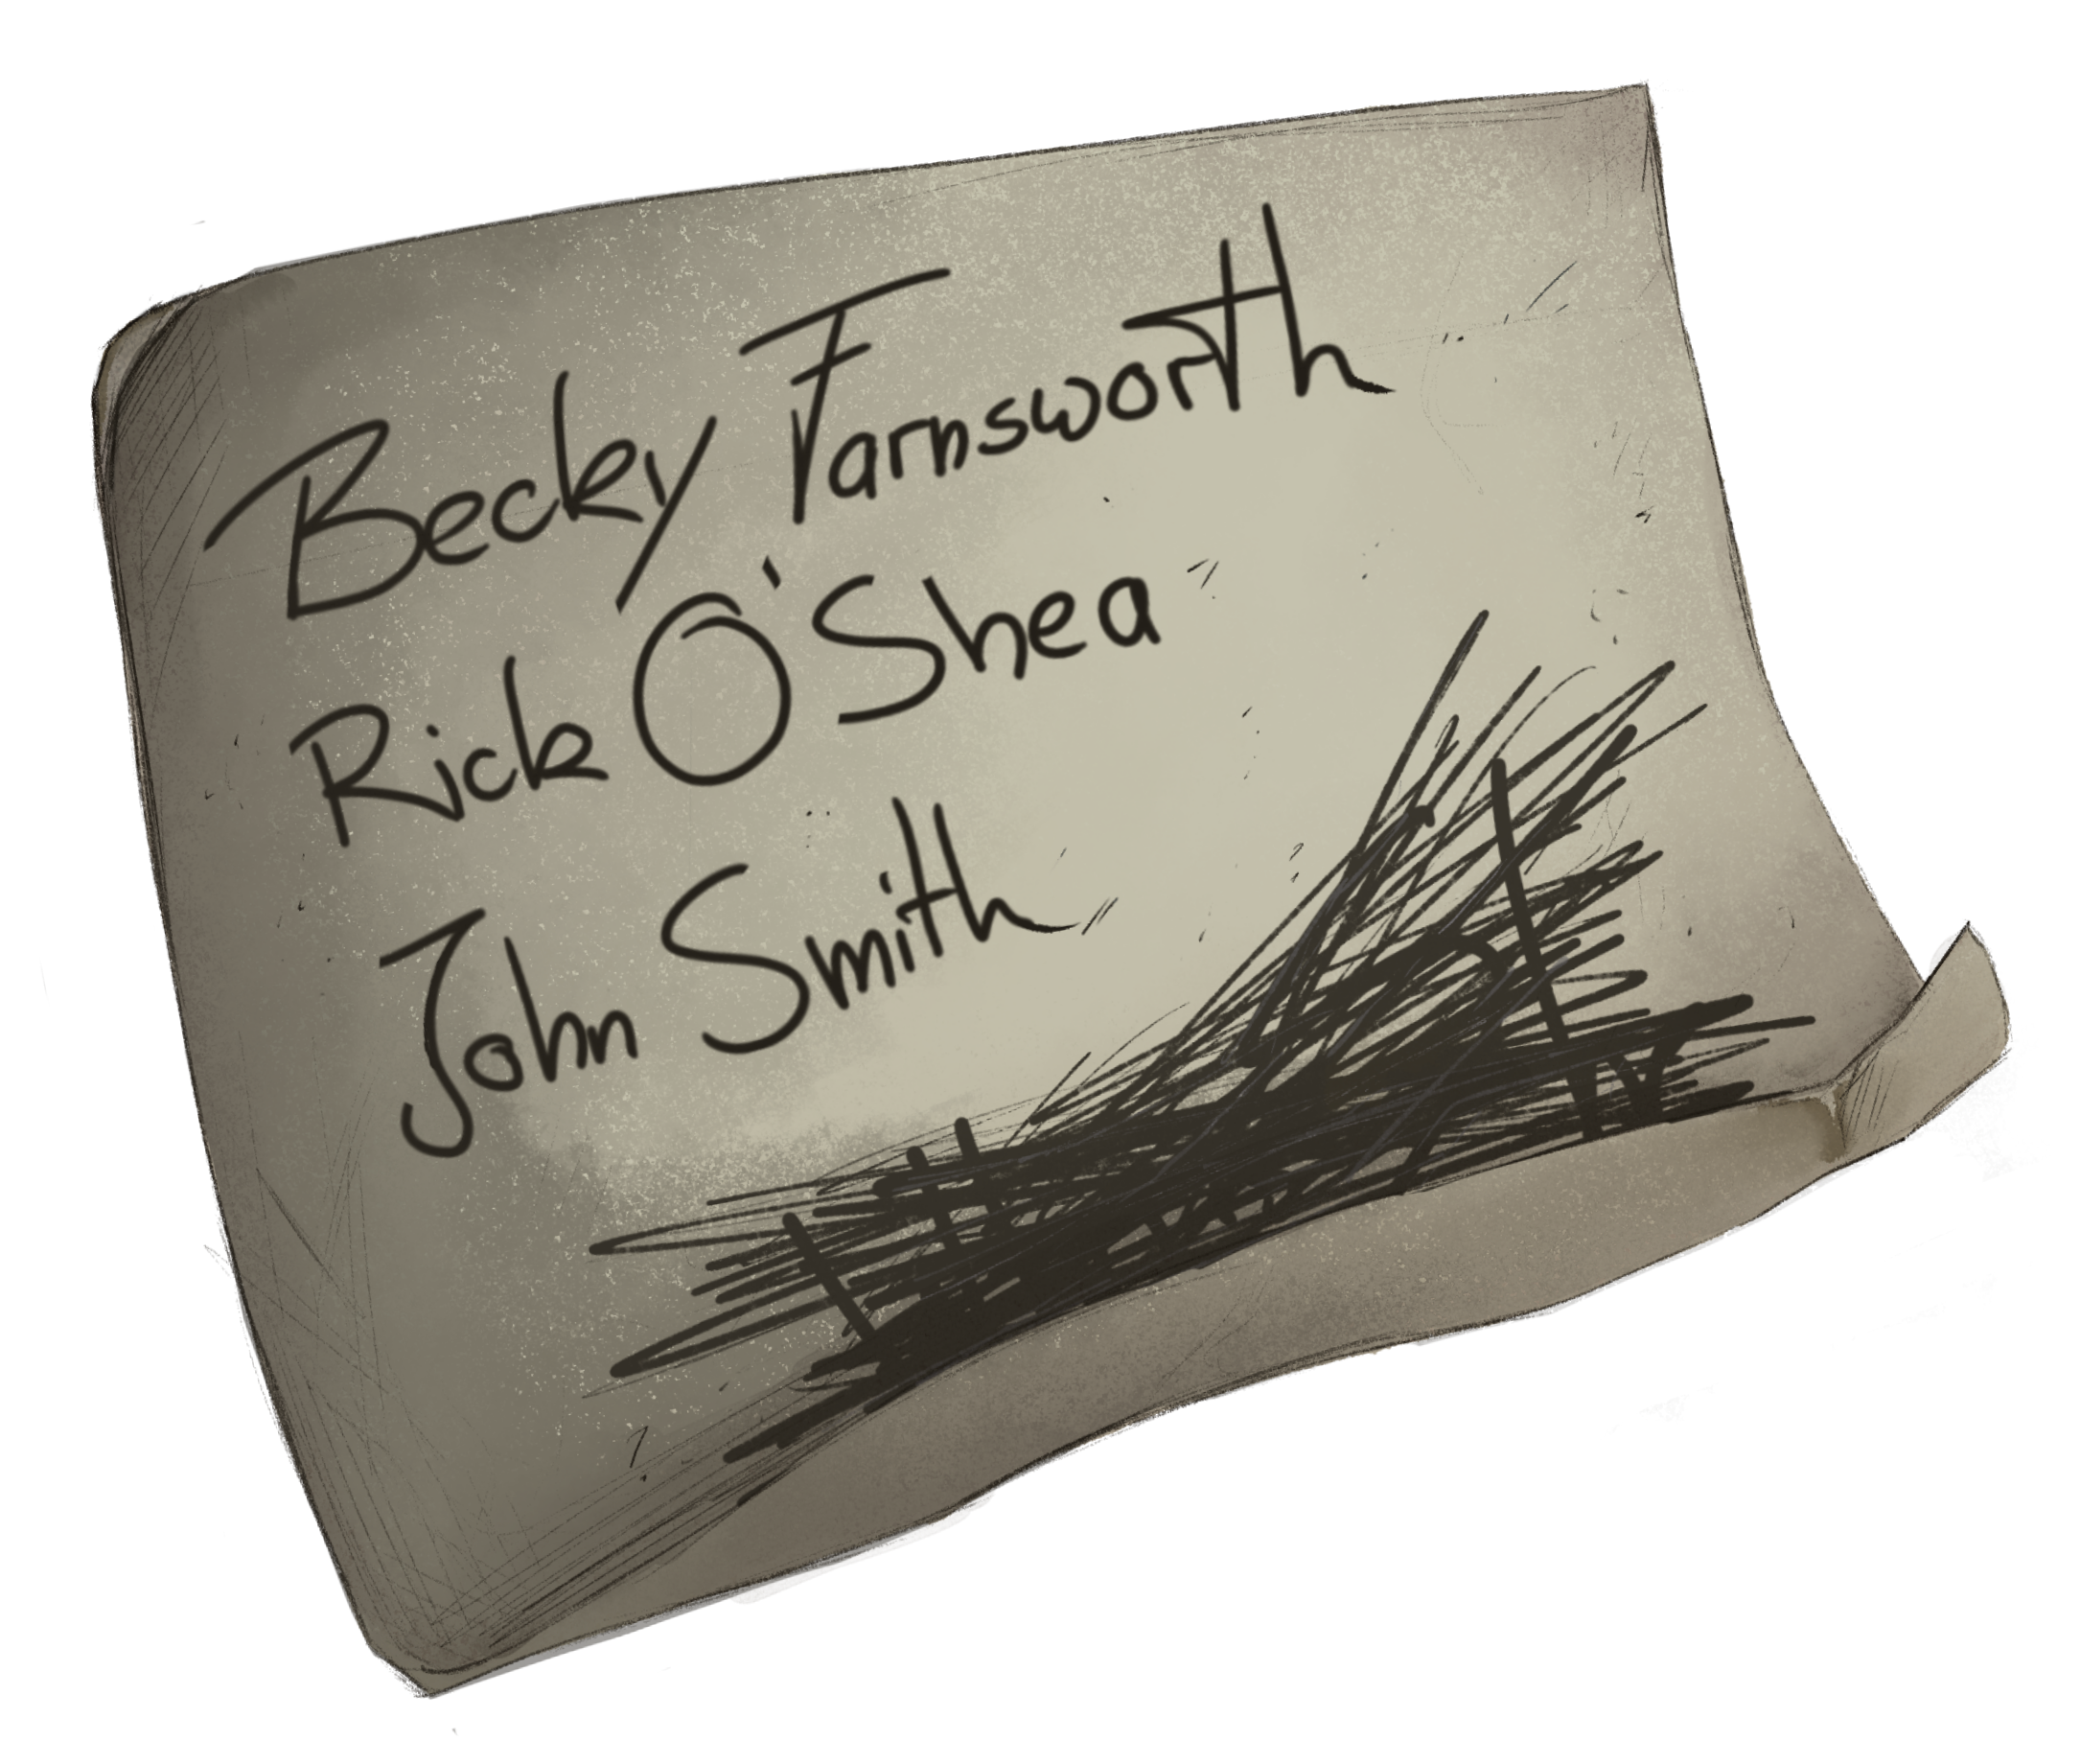 Becky Farnsworth
Rick O'Shea
John Smith